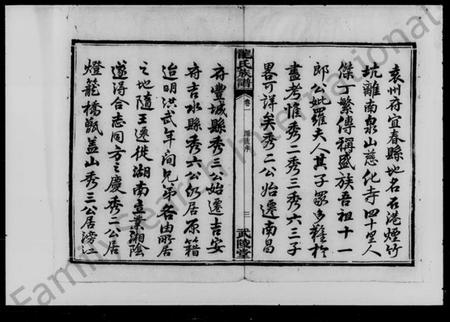 袁州府宜春縣地名石港煙竹
坑離南泉山慈化寺四十里人
傑丁繁傳稱盛族吾祖十一
郎公妣羅夫人其子眾多難於
盡考惟秀二秀三秀六三子
畧可詳矣秀二公始遷南昌
龍氏族譜
卷一
三
武陵堂
府豐城縣秀三公始遷吉安
府吉水縣秀六公仍居原籍
迨明洪武年間兄弟各由所居
之地隨王遷徙湖南立業湘陰
遂得合志同方之慶秀二公居
燈籠橋甑蓋山秀三公居濠江